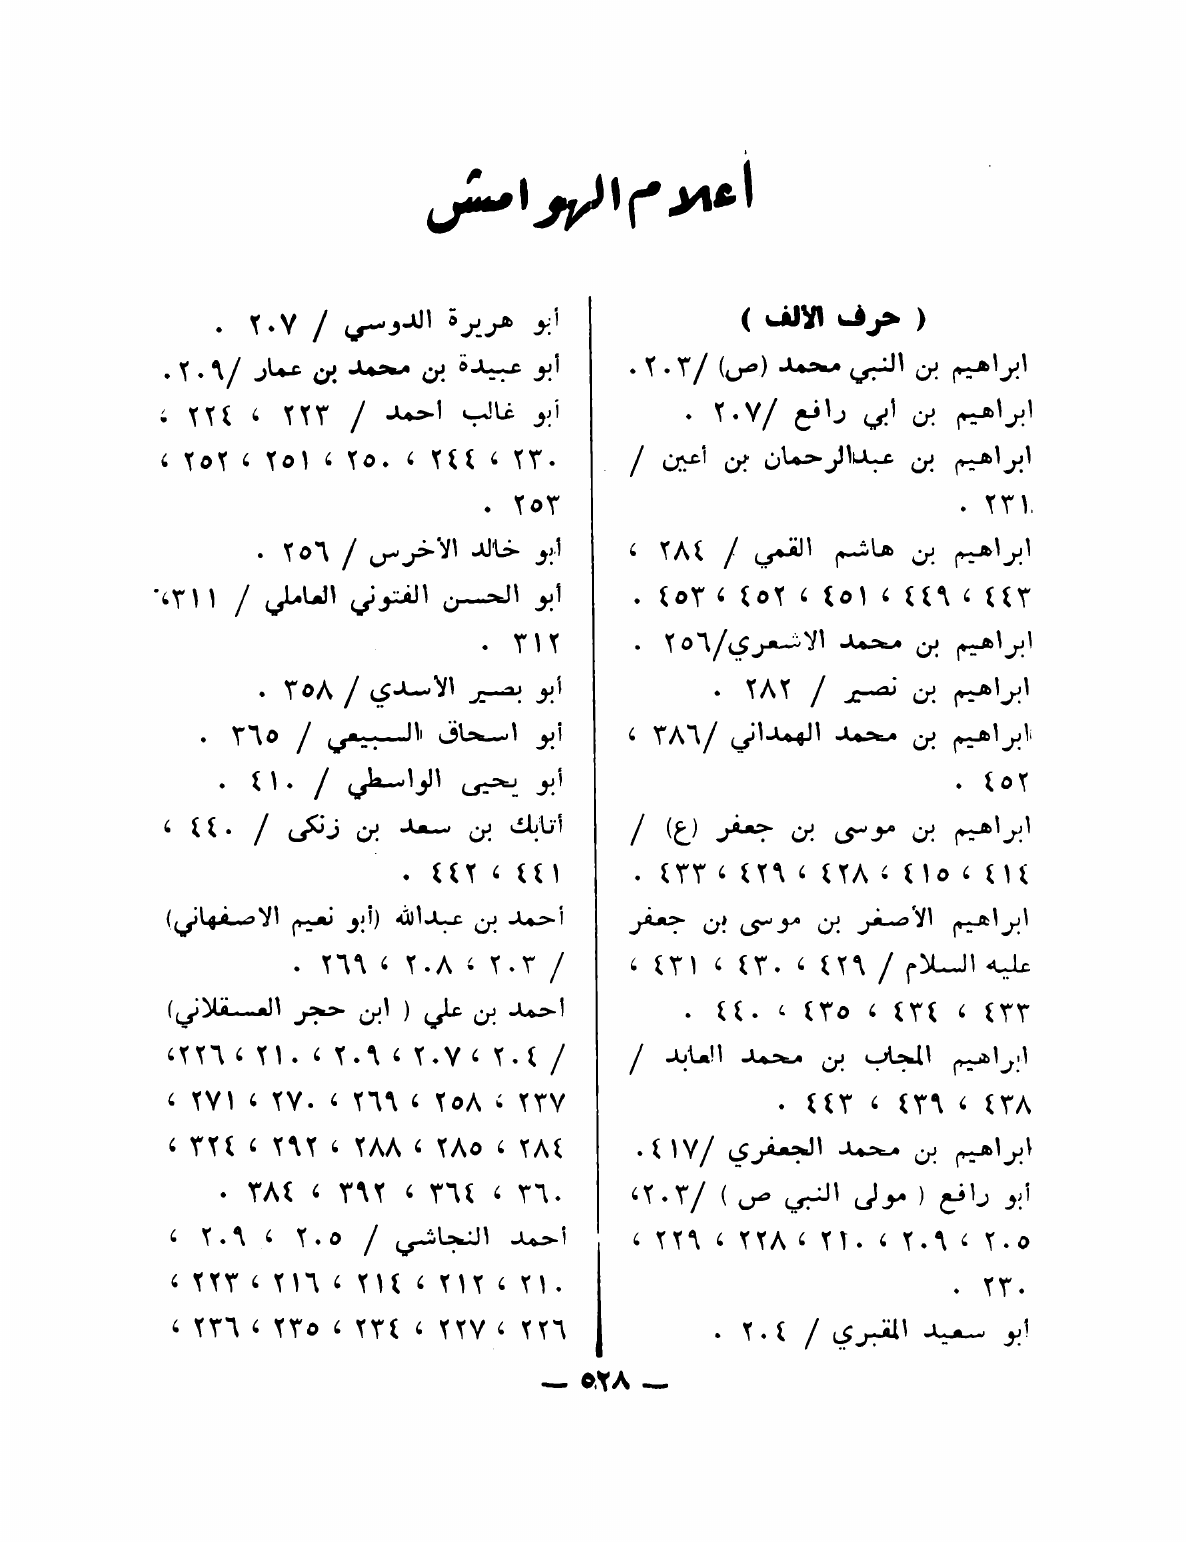 أعلام الهوامش
( حرف الألف )
ابراهيم بن النبي محمد (ص) /٢٠٣.
ابراهيم بن أبي رافع /٢٠٧ .
ابراهيم بن عبدالرحمان بن أعين /
٢٣١ .
ابراهيم بن هاشم القمي / ٢٨٤ ،
٤٤٣ ، ٤٤٩ ، ٤٥١ ، ٤٥٢ ، ٤٥٣ .
ابراهيم بن محمد الاشعري/٢٥٦ .
ابراهيم بن نصير / ٢٨٢ .
ابراهيم بن محمد الهمداني /٣٨٦ ،
٤٥٢ .
ابراهيم بن موسى بن جعفر (ع) /
٤١٤ ، ٤١٥ ، ٤٢٨ ، ٤٢٩ ، ٤٣٣ .
ابراهيم الأصغر بن موسى بن جعفر
عليه السلام / ٤٢٩ ، ٤٣٠ ، ٤٣١ ،
٤٣٣ ، ٤٣٤ ، ٤٣٥ ، ٤٤٠ .
ابراهيم المجاب بن محمد العابد /
٤٣٨ ، ٤٣٩ ، ٤٤٣ .
ابراهيم بن محمد الجعفري /٤١٧.
أبو رافع ( مولى النبي ص ) /٢٠٣،
٢٠٥ ، ٢٠٩ ، ٢١٠ ، ٢٢٨ ، ٢٢٩ ،
٢٣٠ .
أبو سعيد المقبري / ٢٠٤ .
أبو هريرة الدوسي / ٢٠٧ .
أبو عبيدة بن محمد بن عمار /٢٠٩.
أبو غالب احمد / ٢٢٣ ، ٢٢٤ ،
٢٣٠ ، ٢٤٤ ، ٢٥٠ ، ٢٥١ ، ٢٥٢ ،
٢٥٣ .
أبو خالد الأخرس / ٢٥٦ .
أبو الحسن الفتوني العاملي / ٣١١،
٣١٢ .
أبو بصير الأسدي / ٣٥٨ .
أبو اسحاق السبيعي / ٣٦٥ .
أبو يحيى الواسطي / ٤١٠ .
أتابك بن سعد بن زنكى / ٤٤٠ ،
٤٤١ ، ٤٤٢ .
أحمد بن عبدالله (أبو نعيم الاصفهاني)
/ ٢٠٣ ، ٢٠٨ ، ٢٦٩ .
احمد بن علي ( ابن حجر العسقلاني)
/ ٢٠٤ ، ٢٠٧ ، ٢٠٩ ، ٢١٠ ، ٢٢٦،
٢٣٧ ، ٢٥٨ ، ٢٦٩ ، ٢٧٠ ، ٢٧١ ،
٢٨٤ ، ٢٨٥ ، ٢٨٨ ، ٢٩٢ ، ٣٢٤ ،
٣٦٠ ، ٣٦٤ ، ٣٩٢ ، ٣٨٤ .
أحمد النجاشي / ٢٠٥ ، ٢٠٩ ،
٢١٠ ، ٢١٢ ، ٢١٤ ، ٢١٦ ، ٢٢٣ ،
٢٢٦ ، ٢٢٧ ، ٢٣٤ ، ٢٣٥ ، ٢٣٦ ،
— ٥٢٨ —